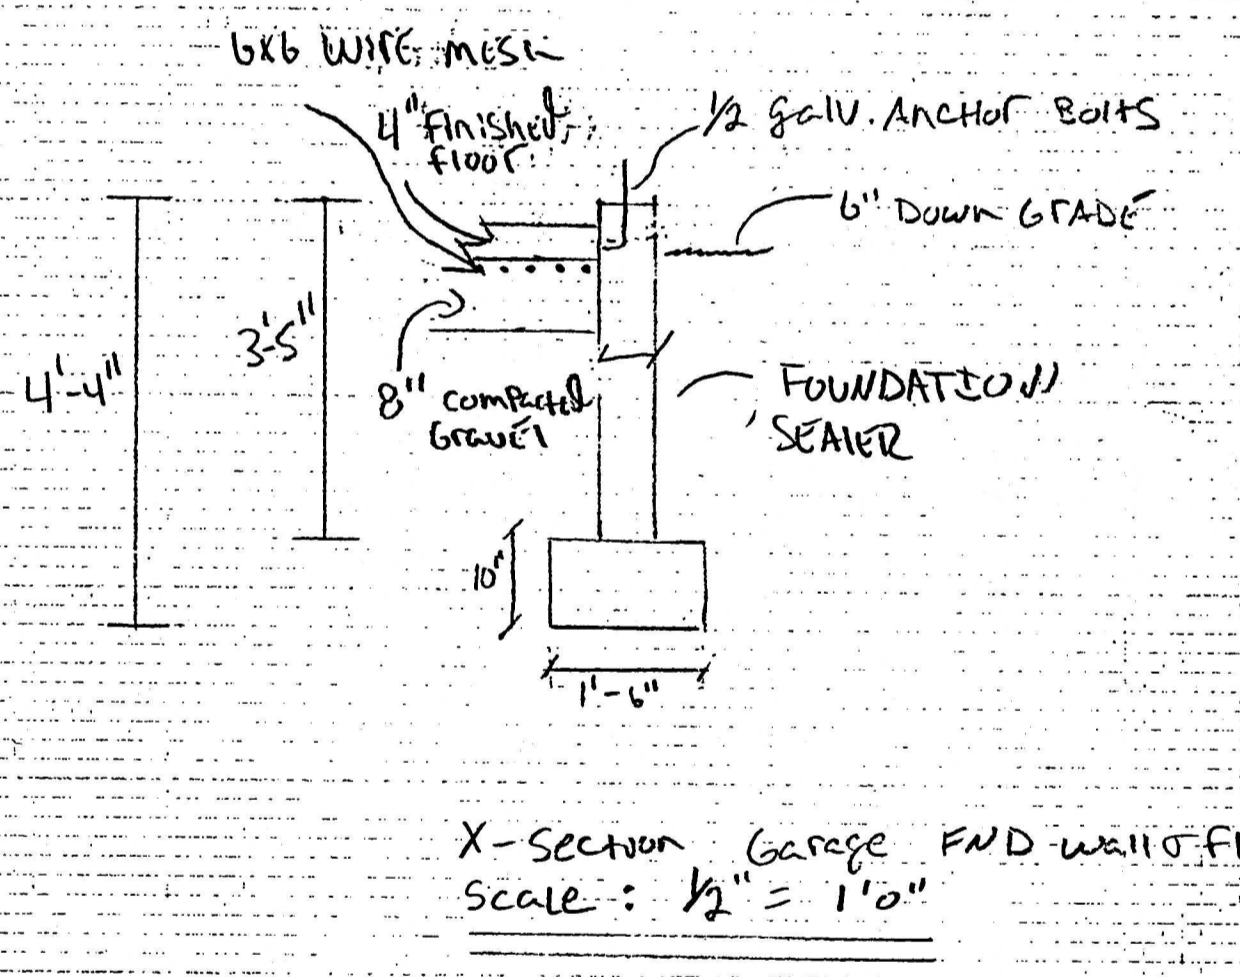 6x6 WIRE MESH
4" Finished
floor
1/2 galv. Anchor Bolts
6" Down GRADE
3'-5"
4'-4"
8" compacted
Gravel
FOUNDATION
SEALER
10"
1'-6"
X-Section Garage FND wall & Fl
Scale: 1/2" = 1'0"